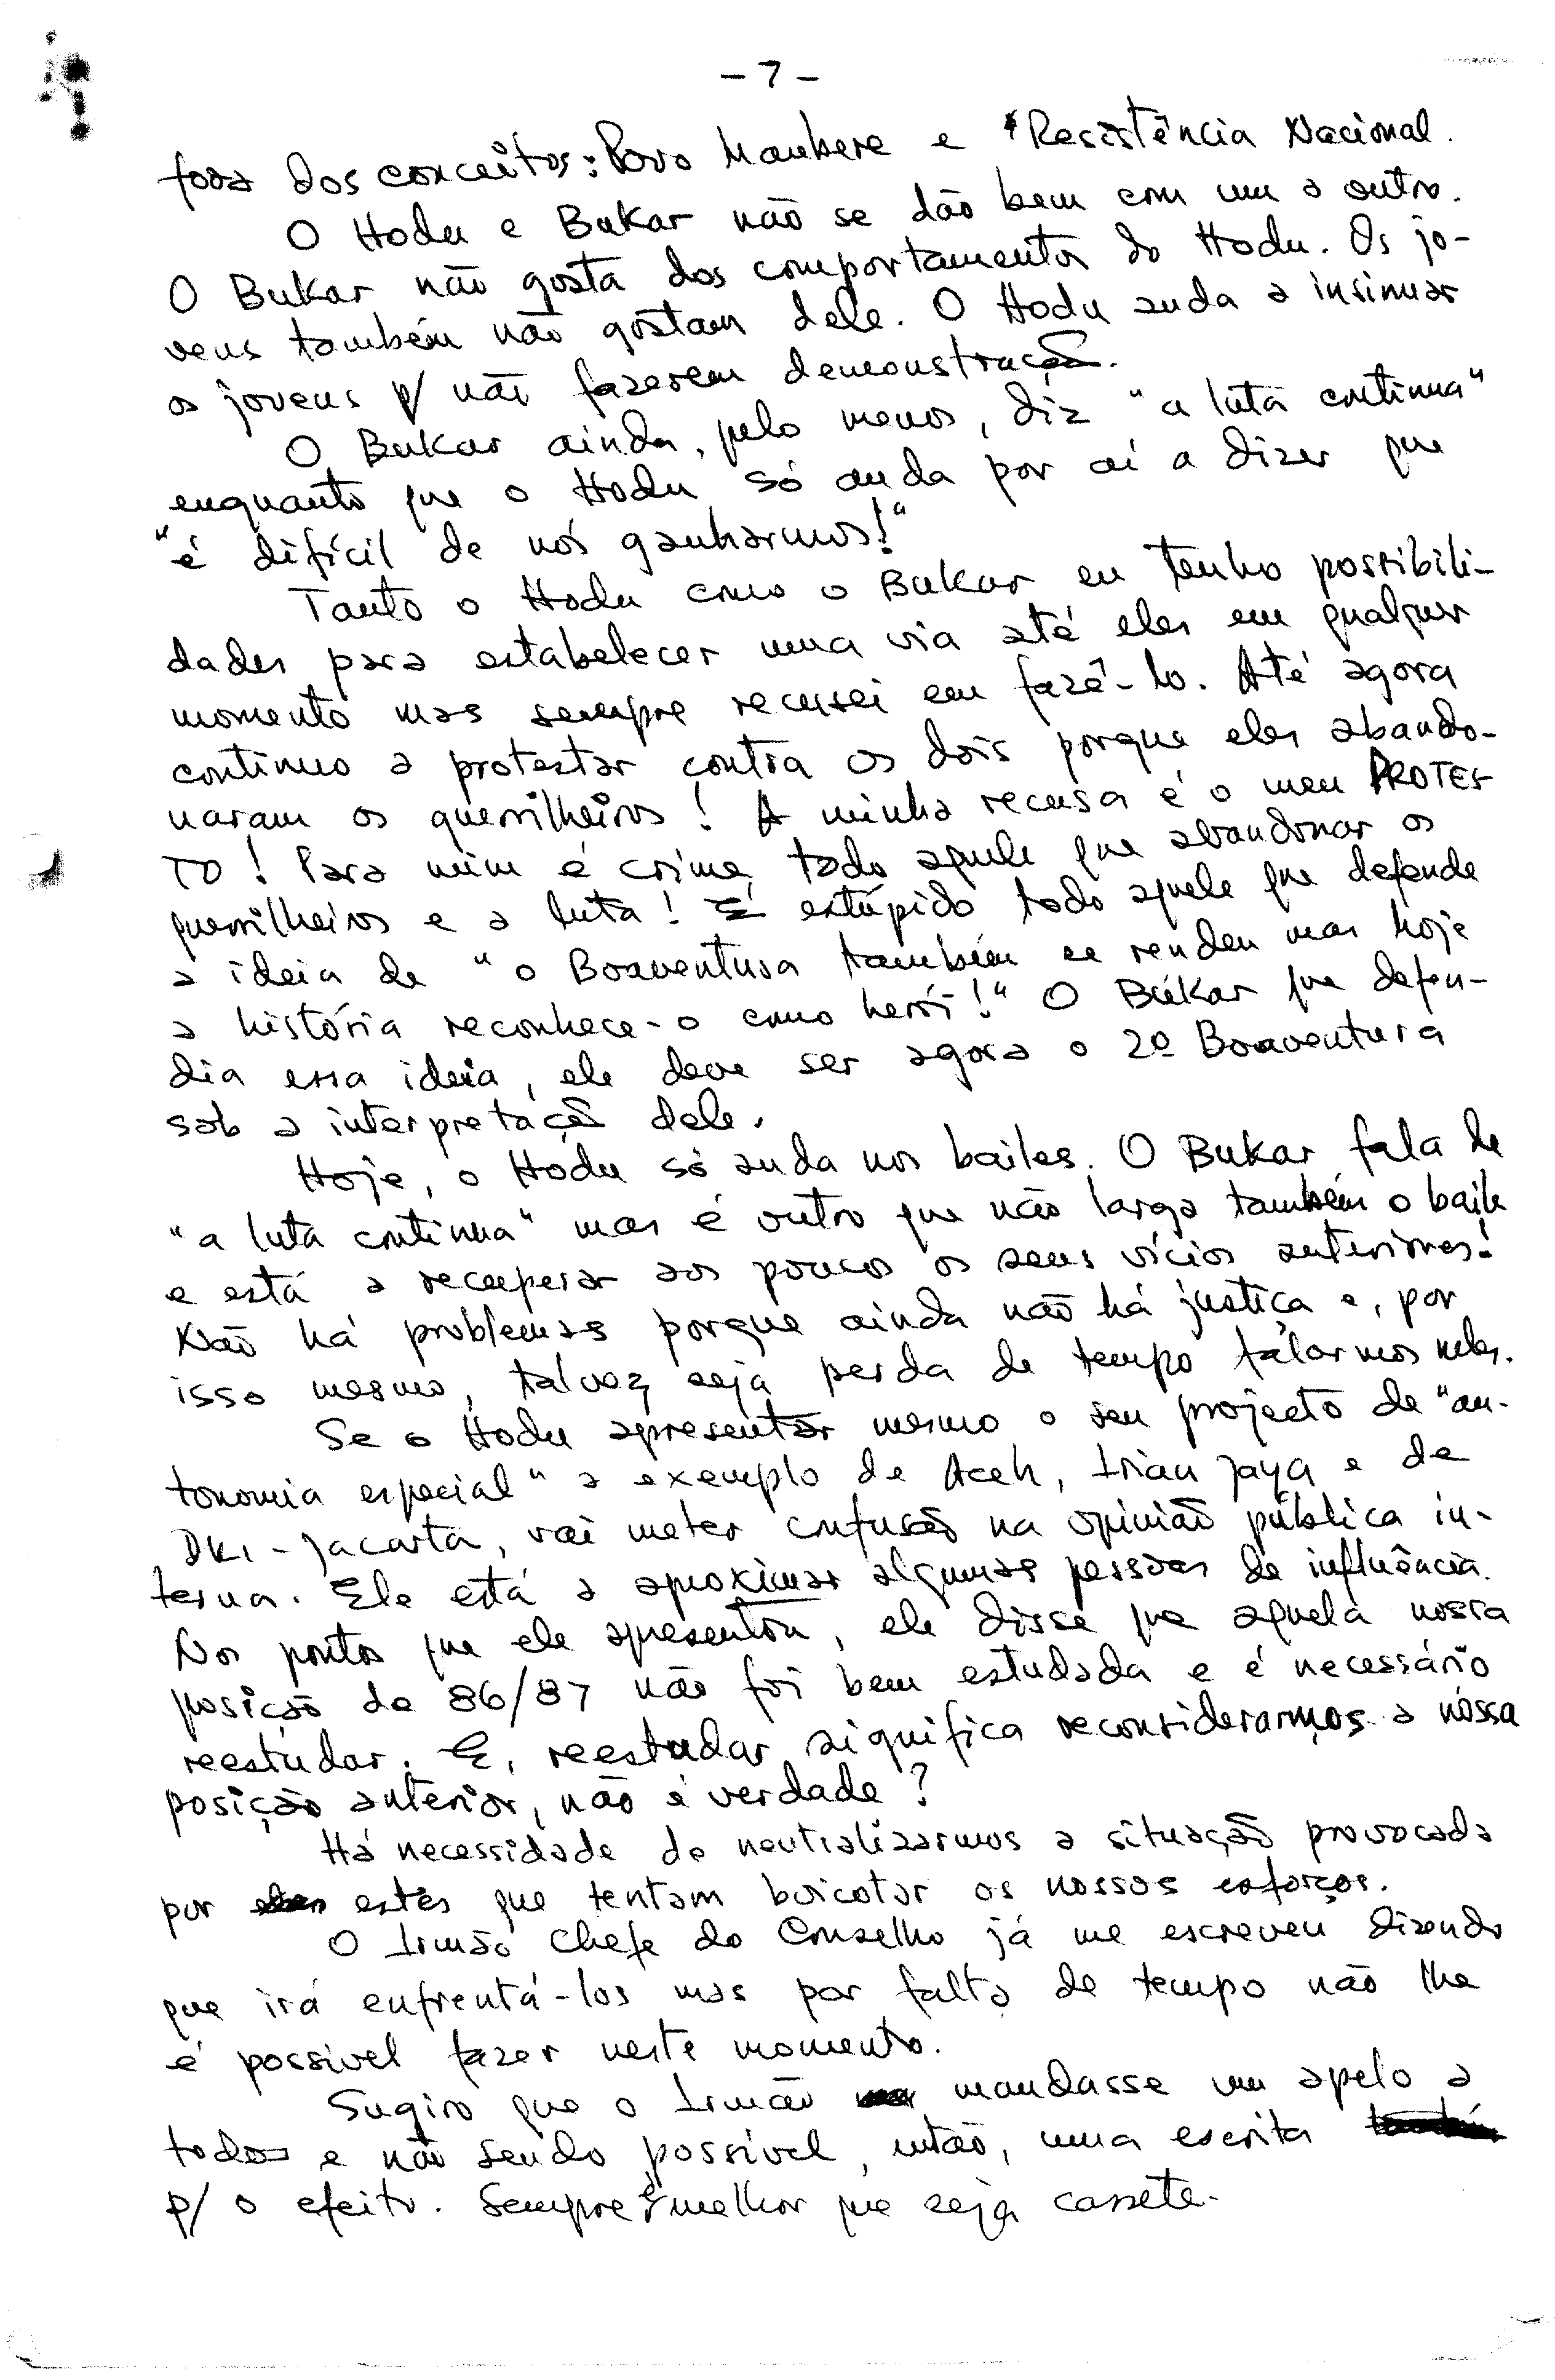 - 7 -
fora dos conceitos: Povo Maubere e Resistência Nacional.
O Hodu e Bukar não se dão bem com um o outro.
O Bukar não gosta dos comportamentos do Hodu. Os jo-
vens também não gostam dele. O Hodu anda a insinuar
os jovens p/ não fazerem demonstração.
O Bukar ainda, pelo menos, diz "a luta continua"
enquanto que o Hodu só anda por aí a dizer que
"é difícil de nós ganharmos!"
Tanto o Hodu como o Bukar eu tenho possibili-
dades para estabelecer uma via até eles em qualquer
momento mas sempre recusei em fazê-lo. Até agora
continuo a protestar contra os dois porque eles abando-
naram os guerrilheiros! A minha recusa é o meu PROTES-
TO! Para mim é crime, todo aquele que abandonar os
guerrilheiros e a luta! É estúpido todo aquele que defende
a ideia de "o Boaventura também se rendeu mas hoje
a história reconhece-o como herói!" O Bukar que defen-
dia essa ideia, ele deve ser agora o 2º Boaventura
sob a interpretação dele.
Hoje, o Hodu só anda nos bailes. O Bukar fala de
"a luta continua" mas é outro que não larga também o baile
e está a recuperar aos poucos os seus vícios anteriores!
Não há problemas porque ainda não há justiça e, por
isso mesmo, talvez seja perda de tempo falarmos neles.
Se o Hodu apresentar mesmo o seu projecto de "au-
tonomia especial" a exemplo de Aceh, Irian Jaya e de
DKI-Jacarta, vai meter confusão na opinião pública in-
terna. Ele está a aproximar algumas pessoas de influência.
Nos pontos que ele apresentou, ele disse que aquela nossa
posição de 86/87 não foi bem estudada e é necessário
reestudar. E, reestudar significa reconsiderarmos a nossa
posição anterior, não é verdade?
Há necessidade de neutralizarmos a situação provocada
por estes que tentam boicotar os nossos esforços.
O Irmão Chefe do Conselho já me escreveu dizendo
que irá enfrentá-los mas por falta de tempo não lhe
é possível fazer neste momento.
Sugiro que o Irmão mandasse um apelo a
todos e não sendo possível, então, uma escrita
p/ o efeito. Sempre é melhor que seja cassete.